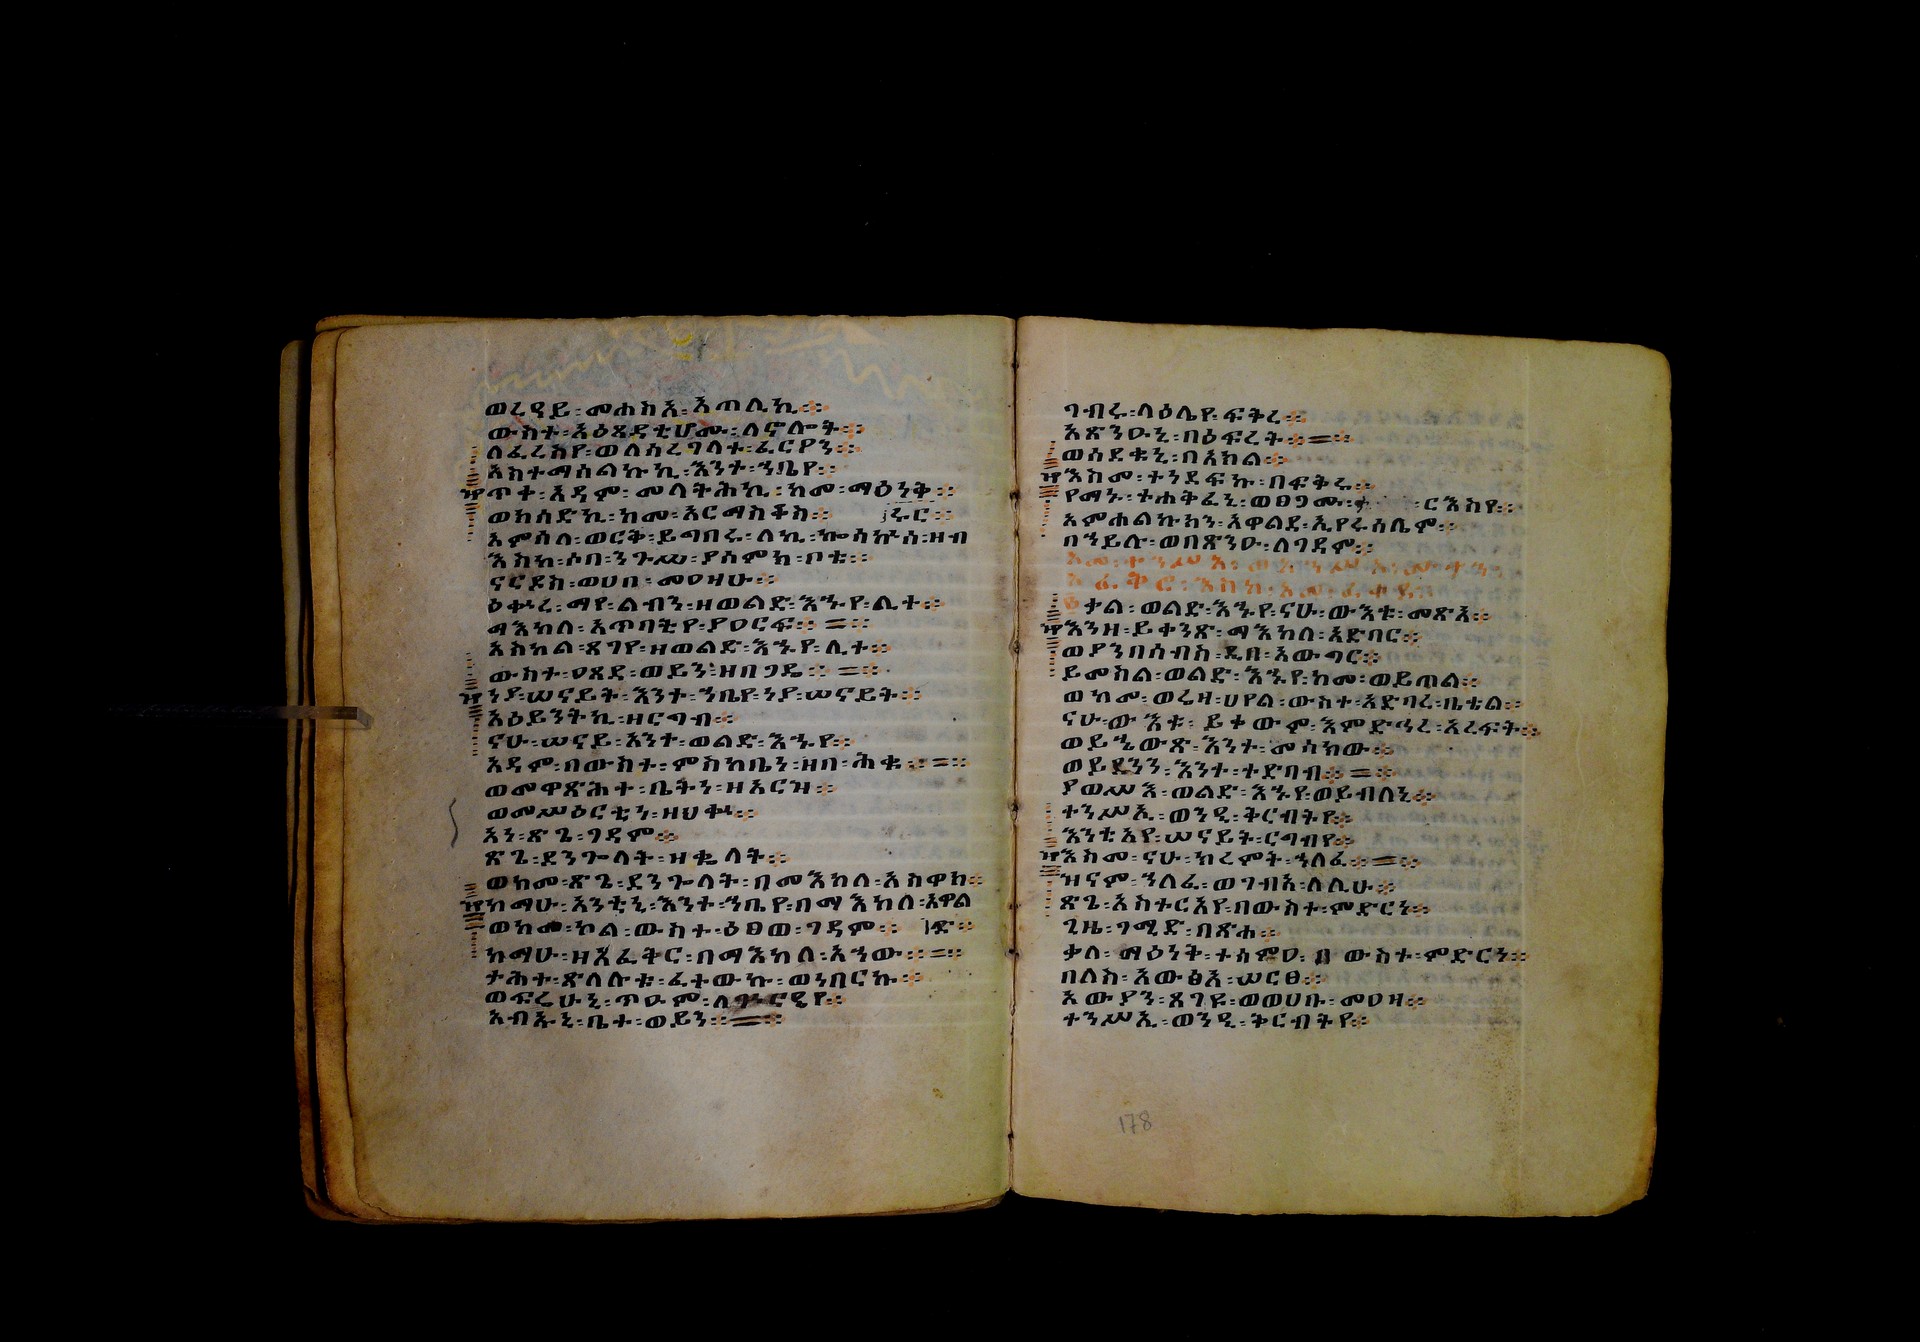 ወረዳይ፡መሐክእ፡አጠሊኪ።
ውስተ፡አዕጻዳቲሆሙ፡ለኖሎት።
ለፈረስየ፡ወለሰረገላተ፡ፈርዖን።
አስተማሰልኩኪ፡እንተ፡ኀቤየ።
ጥተ፡አዳም፡መላትሕኪ፡ከመ፡ማዕነቅ።
ወክሳድኪ፡ከመ፡አርማስቆስ።
አምሳለ፡ወርቅ፡ይግበሩ፡ለኪ፡ኰሳኵሰ፡ዘብ ሩር።
እስከ፡ሶበ፡ንጉሥ፡ያሰምክ፡ቦቱ።
ናርዶስ፡ወሀበ፡መዐዛሁ።
ዕቍረ፡ማየ፡ልብን፡ዘወልድ፡እኁየ፡ሊተ።
ማእከለ፡አጥባቲየ፡ያዐርፍ።
አስካል፡ጸገየ፡ዘወልድ፡እኁየ፡ሊተ።
ውስተ፡ዐጸደ፡ወይን፡ዘበጋዴ።
ነያ፡ሠናይት፡እንተ፡ኀቤየ፡ነያ፡ሠናይት።
አዕይንትኪ፡ዘርግብ።
ናሁ፡ሠናይ፡አንተ፡ወልድ፡እኁየ።
አዳም፡በውስተ፡ምስካቤነ፡ዘበ፡ሕቁ።
ወመዋጽሕተ፡ቤትነ፡ዘአርዝ።
ወመሥዕርቲነ፡ዘህቍ።
አነ፡ጽጌ፡ገዳም።
ጽጌ፡ደንጐላት፡ዘቈላት።
ወከመ፡ጽጌ፡ደንጐላት፡በመእከለ፡አስዋክ።
ከማሁ፡አንቲኒ፡እንተ፡ኀቤየ፡በማእከለ፡አዋል ድ።
ወከመ፡ኮል፡ውስተ፡ዕፀወ፡ገዳም።
ከማሁ፡ዘአፈቅር፡በማእከለ፡አኀው።
ታሕተ፡ጽላሎቱ፡ፈተውኩ፡ወነበርኩ።
ወፍሬሁኒ፡ጥዑም፡ለጕርዔየ።
አብኡኒ፡ቤተ፡ወይን።
ገብሩ፡ላዕሌየ፡ፍቅረ።
አጽንዑኒ፡በዕፍረት።
ወሰደቁኒ፡በአኮል።
እስመ፡ተነደፍኩ፡በፍቅሩ።
የማኑ፡ተሐቅፈኒ፡ወፀጋሙ፡ ርእስየ።
አምሐልኩክን፡አዋልደ፡ኢየሩሳሌም።
በኀይሉ፡ወበጽንዑ፡ለገዳም።
ቃል፡ወልድ፡እኁየ፡ናሁ፡ውእቱ፡መጽአ።
እንዘ፡ይቀንጽ፡ማእከለ፡አድባር።
ወያንበሰብስ፡ዲበ፡አውግር።
ይመስል፡ወልድ፡እኁየ፡ከመ፡ወይጠል።
ወከመ፡ወሬዛ፡ሀየል፡ውስተ፡አድባረ፡ቤቴል።
ናሁ፡ውእቱ፡ይቀውም፡እምድኅረ፡አረፍት።
ወይኄውጽ፡እንተ፡መሳክው።
ወይደንን፡እንተ፡ተድባብ።
ያወሥእ፡ወልድ፡እኁየ፡ወይብለኒ።
ተንሥኢ፡ወንዒ፡ቅርብትየ።
እንቲአየ፡ሠናይት፡ርግብየ።
እስመ፡ናሁ፡ክረምት፡ኀለፈ።
ዝናም፡ኀለፈ፡ወገብአ፡ለሊሁ።
ጽጌ፡አስተርአየ፡በውስተ፡ምድርነ።
ጊዜ፡ገሚድ፡በጽሐ።
ቃለ፡ማዕነት፡ተሰምዐ፡በውስተ፡ምድርነ።
በለስ፡አውፅአ፡ሠርፀ።
አውያን፡ጸገዩ፡ወወሀቡ፡መዐዛ።
ተንሥኢ፡ወንዒ፡ቅርብትየ።
178